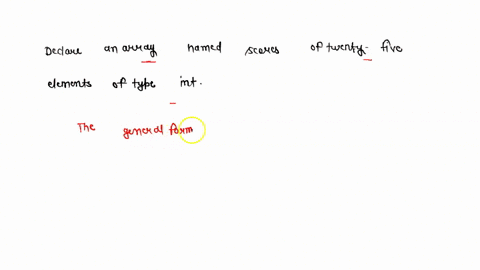 Declare an array named scores of twenty-five
elements of type int.
The general form